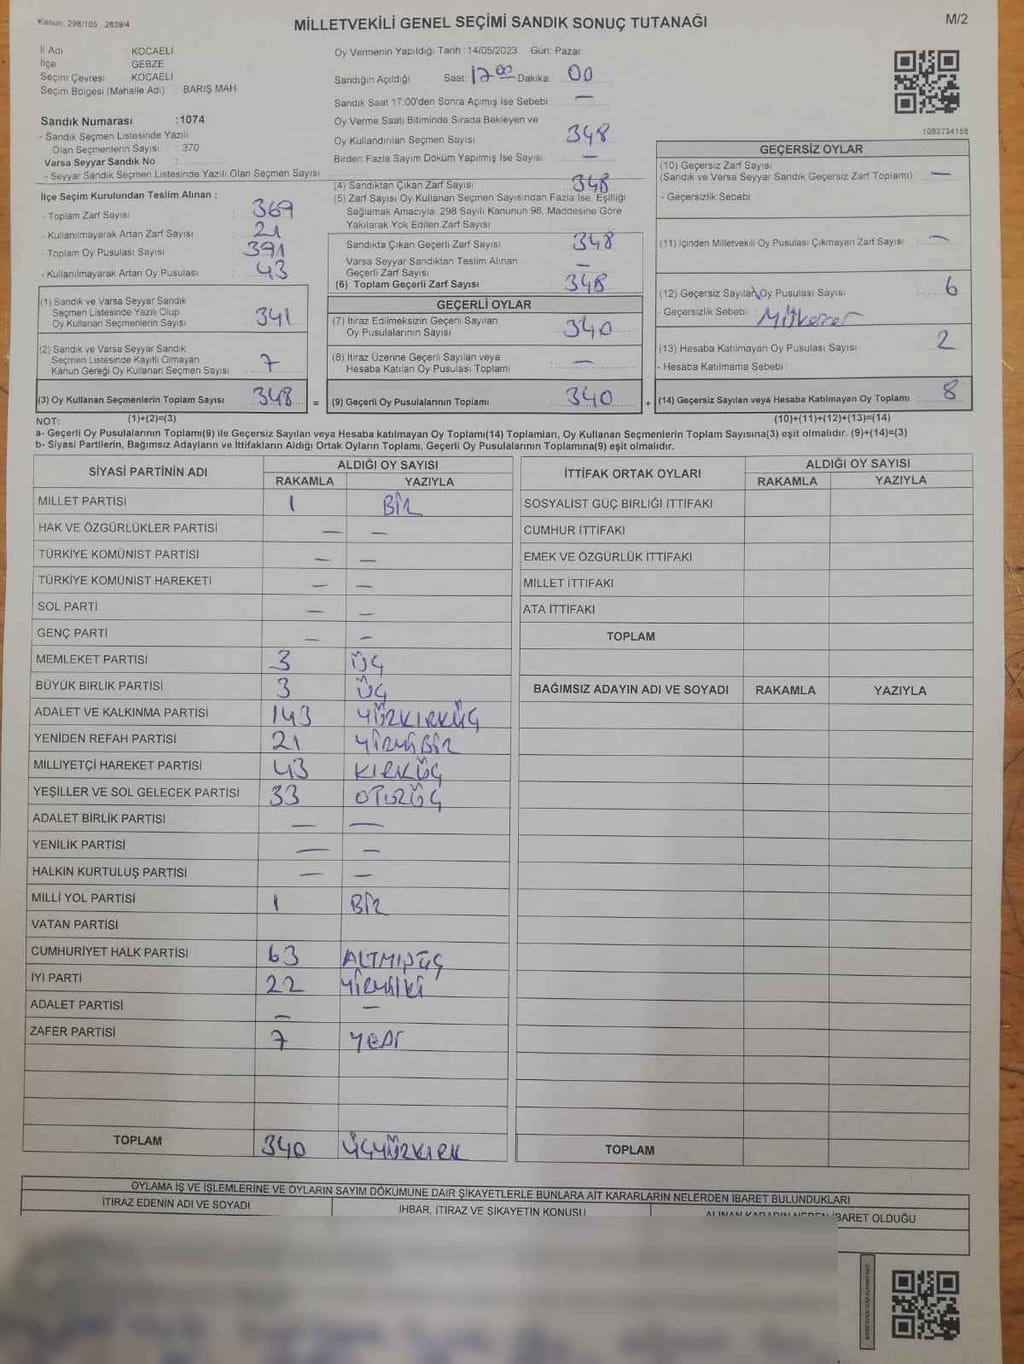 Kanun: 298/105 2839/4
MİLLETVEKİLİ GENEL SEÇİMİ SANDIK SONUÇ TUTANAĞI
M/2
İl Adı : KOCAELİ
İlçe : GEBZE
Seçim Çevresi : KOCAELİ
Seçim Bölgesi (Mahalle Adı) : BARIŞ MAH.
Sandık Numarası :1074
- Sandık Seçmen Listesinde Yazılı
Olan Seçmenlerin Sayısı : 370
Varsa Seyyar Sandık No :
- Seyyar Sandık Seçmen Listesinde Yazılı Olan Seçmen Sayısı
İlçe Seçim Kurulundan Teslim Alınan :
- Toplam Zarf Sayısı : 369
- Kullanılmayarak Artan Zarf Sayısı : 21
- Toplam Oy Pusulası Sayısı : 391
- Kullanılmayarak Artan Oy Pusulası : 43
(1) Sandık ve Varsa Seyyar Sandık
Seçmen Listesinde Yazılı Olup
Oy Kullanan Seçmenlerin Sayısı : 341
(2) Sandık ve Varsa Seyyar Sandık
Seçmen Listesinde Kayıtlı Olmayan
Kanun Gereği Oy Kullanan Seçmen Sayısı : 7
(3) Oy Kullanan Seçmenlerin Toplam Sayısı : 348 =
Oy Vermenin Yapıldığı Tarih :14/05/2023 Gün: Pazar
Sandığın Açıldığı Saat: 17:00 Dakika : 00
Sandık Saat 17.00'den Sonra Açımış İse Sebebi : —
Oy Verme Saati Bitiminde Sırada Bekleyen ve
Oy Kullandırılan Seçmen Sayısı : 348
Birden Fazla Sayım Döküm Yapılmış İse Sayısı : —
(4) Sandıktan Çıkan Zarf Sayısı : 348
(5) Zarf Sayısı Oy Kullanan Seçmen Sayısından Fazla İse, Eşitliği
Sağlamak Amacıyla, 298 Sayılı Kanunun 98. Maddesine Göre
Yakılarak Yok Edilen Zarf Sayısı
Sandıkta Çıkan Geçerli Zarf Sayısı : 348
Varsa Seyyar Sandıktan Teslim Alınan
Geçerli Zarf Sayısı : —
(6) Toplam Geçerli Zarf Sayısı : 348
GEÇERLİ OYLAR
(7) İtiraz Edilmeksizin Geçerli Sayılan
Oy Pusulalarının Sayısı : 340
(8) İtiraz Üzerine Geçerli Sayılan veya
Hesaba Katılan Oy Pusulası Toplamı : —
(9) Geçerli Oy Pusulalarının Toplamı : 340 +
1083734156
GEÇERSİZ OYLAR
(10) Geçersiz Zarf Sayısı
(Sandık ve Varsa Seyyar Sandık Geçersiz Zarf Toplamı) : —
- Geçersizlik Sebebi :
(11) İçinden Milletvekili Oy Pusulası Çıkmayan Zarf Sayısı : —
(12) Geçersiz Sayılan Oy Pusulası Sayısı : 6
- Geçersizlik Sebebi :
(13) Hesaba Katılmayan Oy Pusulası Sayısı : 2
- Hesaba Katılmama Sebebi :
(14) Geçersiz Sayılan veya Hesaba Katılmayan Oy Toplamı : 8
NOT: (1)+(2)=(3) (10)+(11)+(12)+(13)=(14)
a- Geçerli Oy Pusulalarının Toplamı(9) ile Geçersiz Sayılan veya Hesaba katılmayan Oy Toplamı(14) Toplamları, Oy Kullanan Seçmenlerin Toplam Sayısına(3) eşit olmalıdır. (9)+(14)=(3)
b- Siyasi Partilerin, Bağımsız Adayların ve İttifakların Aldığı Ortak Oyların Toplamı, Geçerli Oy Pusulalarının Toplamına(9) eşit olmalıdır.
SİYASİ PARTİNİN ADI ALDIĞI OY SAYISI
RAKAMLA YAZIYLA
MİLLET PARTİSİ 1 BİR
HAK VE ÖZGÜRLÜKLER PARTİSİ — —
TÜRKİYE KOMÜNİST PARTİSİ — —
TÜRKİYE KOMÜNİST HAREKETİ — —
SOL PARTİ — —
GENÇ PARTİ — —
MEMLEKET PARTİSİ 3 ÜÇ
BÜYÜK BİRLİK PARTİSİ 3 ÜÇ
ADALET VE KALKINMA PARTİSİ 143 YÜZKIRKÜÇ
YENİDEN REFAH PARTİSİ 21 YİRMİBİR
MİLLİYETÇİ HAREKET PARTİSİ 43 KIRKÜÇ
YEŞİLLER VE SOL GELECEK PARTİSİ 33 OTUZÜÇ
ADALET BİRLİK PARTİSİ — —
YENİLİK PARTİSİ — —
HALKIN KURTULUŞ PARTİSİ — —
MİLLİ YOL PARTİSİ 1 BİR
VATAN PARTİSİ
CUMHURİYET HALK PARTİSİ 63 ALTMIŞÜÇ
İYİ PARTİ 22 YİRMİİKİ
ADALET PARTİSİ — —
ZAFER PARTİSİ 7 YEDİ
TOPLAM 340 ÜÇYÜZKIRK
İTTİFAK ORTAK OYLARI ALDIĞI OY SAYISI
RAKAMLA YAZIYLA
SOSYALİST GÜÇ BİRLİĞİ İTTİFAKI
CUMHUR İTTİFAKI
EMEK VE ÖZGÜRLÜK İTTİFAKI
MİLLET İTTİFAKI
ATA İTTİFAKI
TOPLAM
BAĞIMSIZ ADAYIN ADI VE SOYADI RAKAMLA YAZIYLA
TOPLAM
OYLAMA İŞ VE İŞLEMLERİNE VE OYLARIN SAYIM DÖKÜMÜNE DAİR ŞİKAYETLERLE BUNLARA AİT KARARLARIN NELERDEN İBARET BULUNDUKLARI
İTİRAZ EDENİN ADI VE SOYADI İHBAR, İTİRAZ VE ŞİKAYETİN KONUSU ALINAN KARARIN NEDEN İBARET OLDUĞU